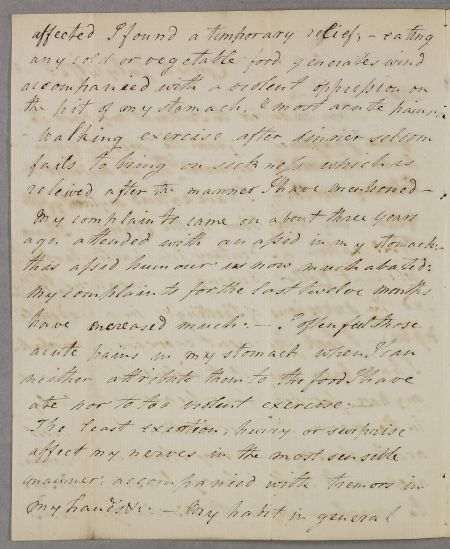 affected I found a temporary relief; - eating
any cold or vegetable food generates wind
accompanied with a violent oppression on
the pit of my stomach, & most acute pains:
- Walking exercise after dinner seldom
fails to bring on sickness which is
relieved after the manner I have mentioned -
My complaints came on about three years
ago, attended with an assid in my stomach:
this assid humour is now much abated:
My complaints for the last twelve months
have encreased much: - I often feel those
acute pains in my stomach when I can
neither attribute them to the food I have
ate nor to too violent exercise. -
The least exertion, hurry or surprise
affect my nerves in the most sensible
manner: accompanied with tremors in
my hands &c. - My habit in general